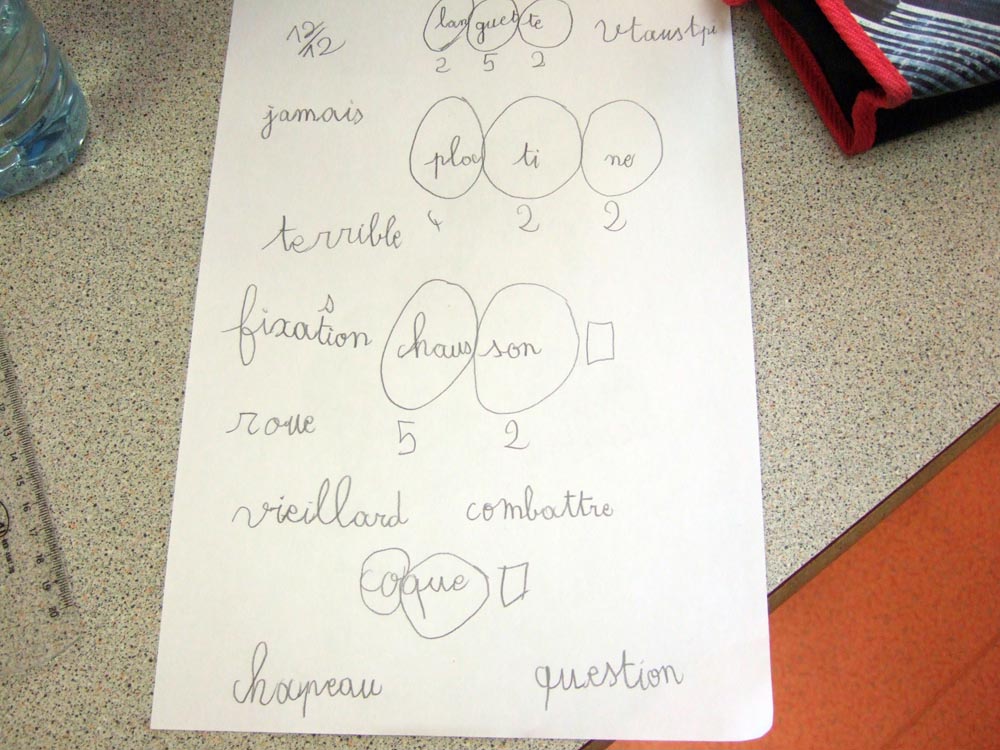 12/12 lan guet te
2 5 2
jamais
ti ne
4 2 2
terrible
s
fixation chaus son
roue 5 2
vieillard combattre
coque
chapeau question